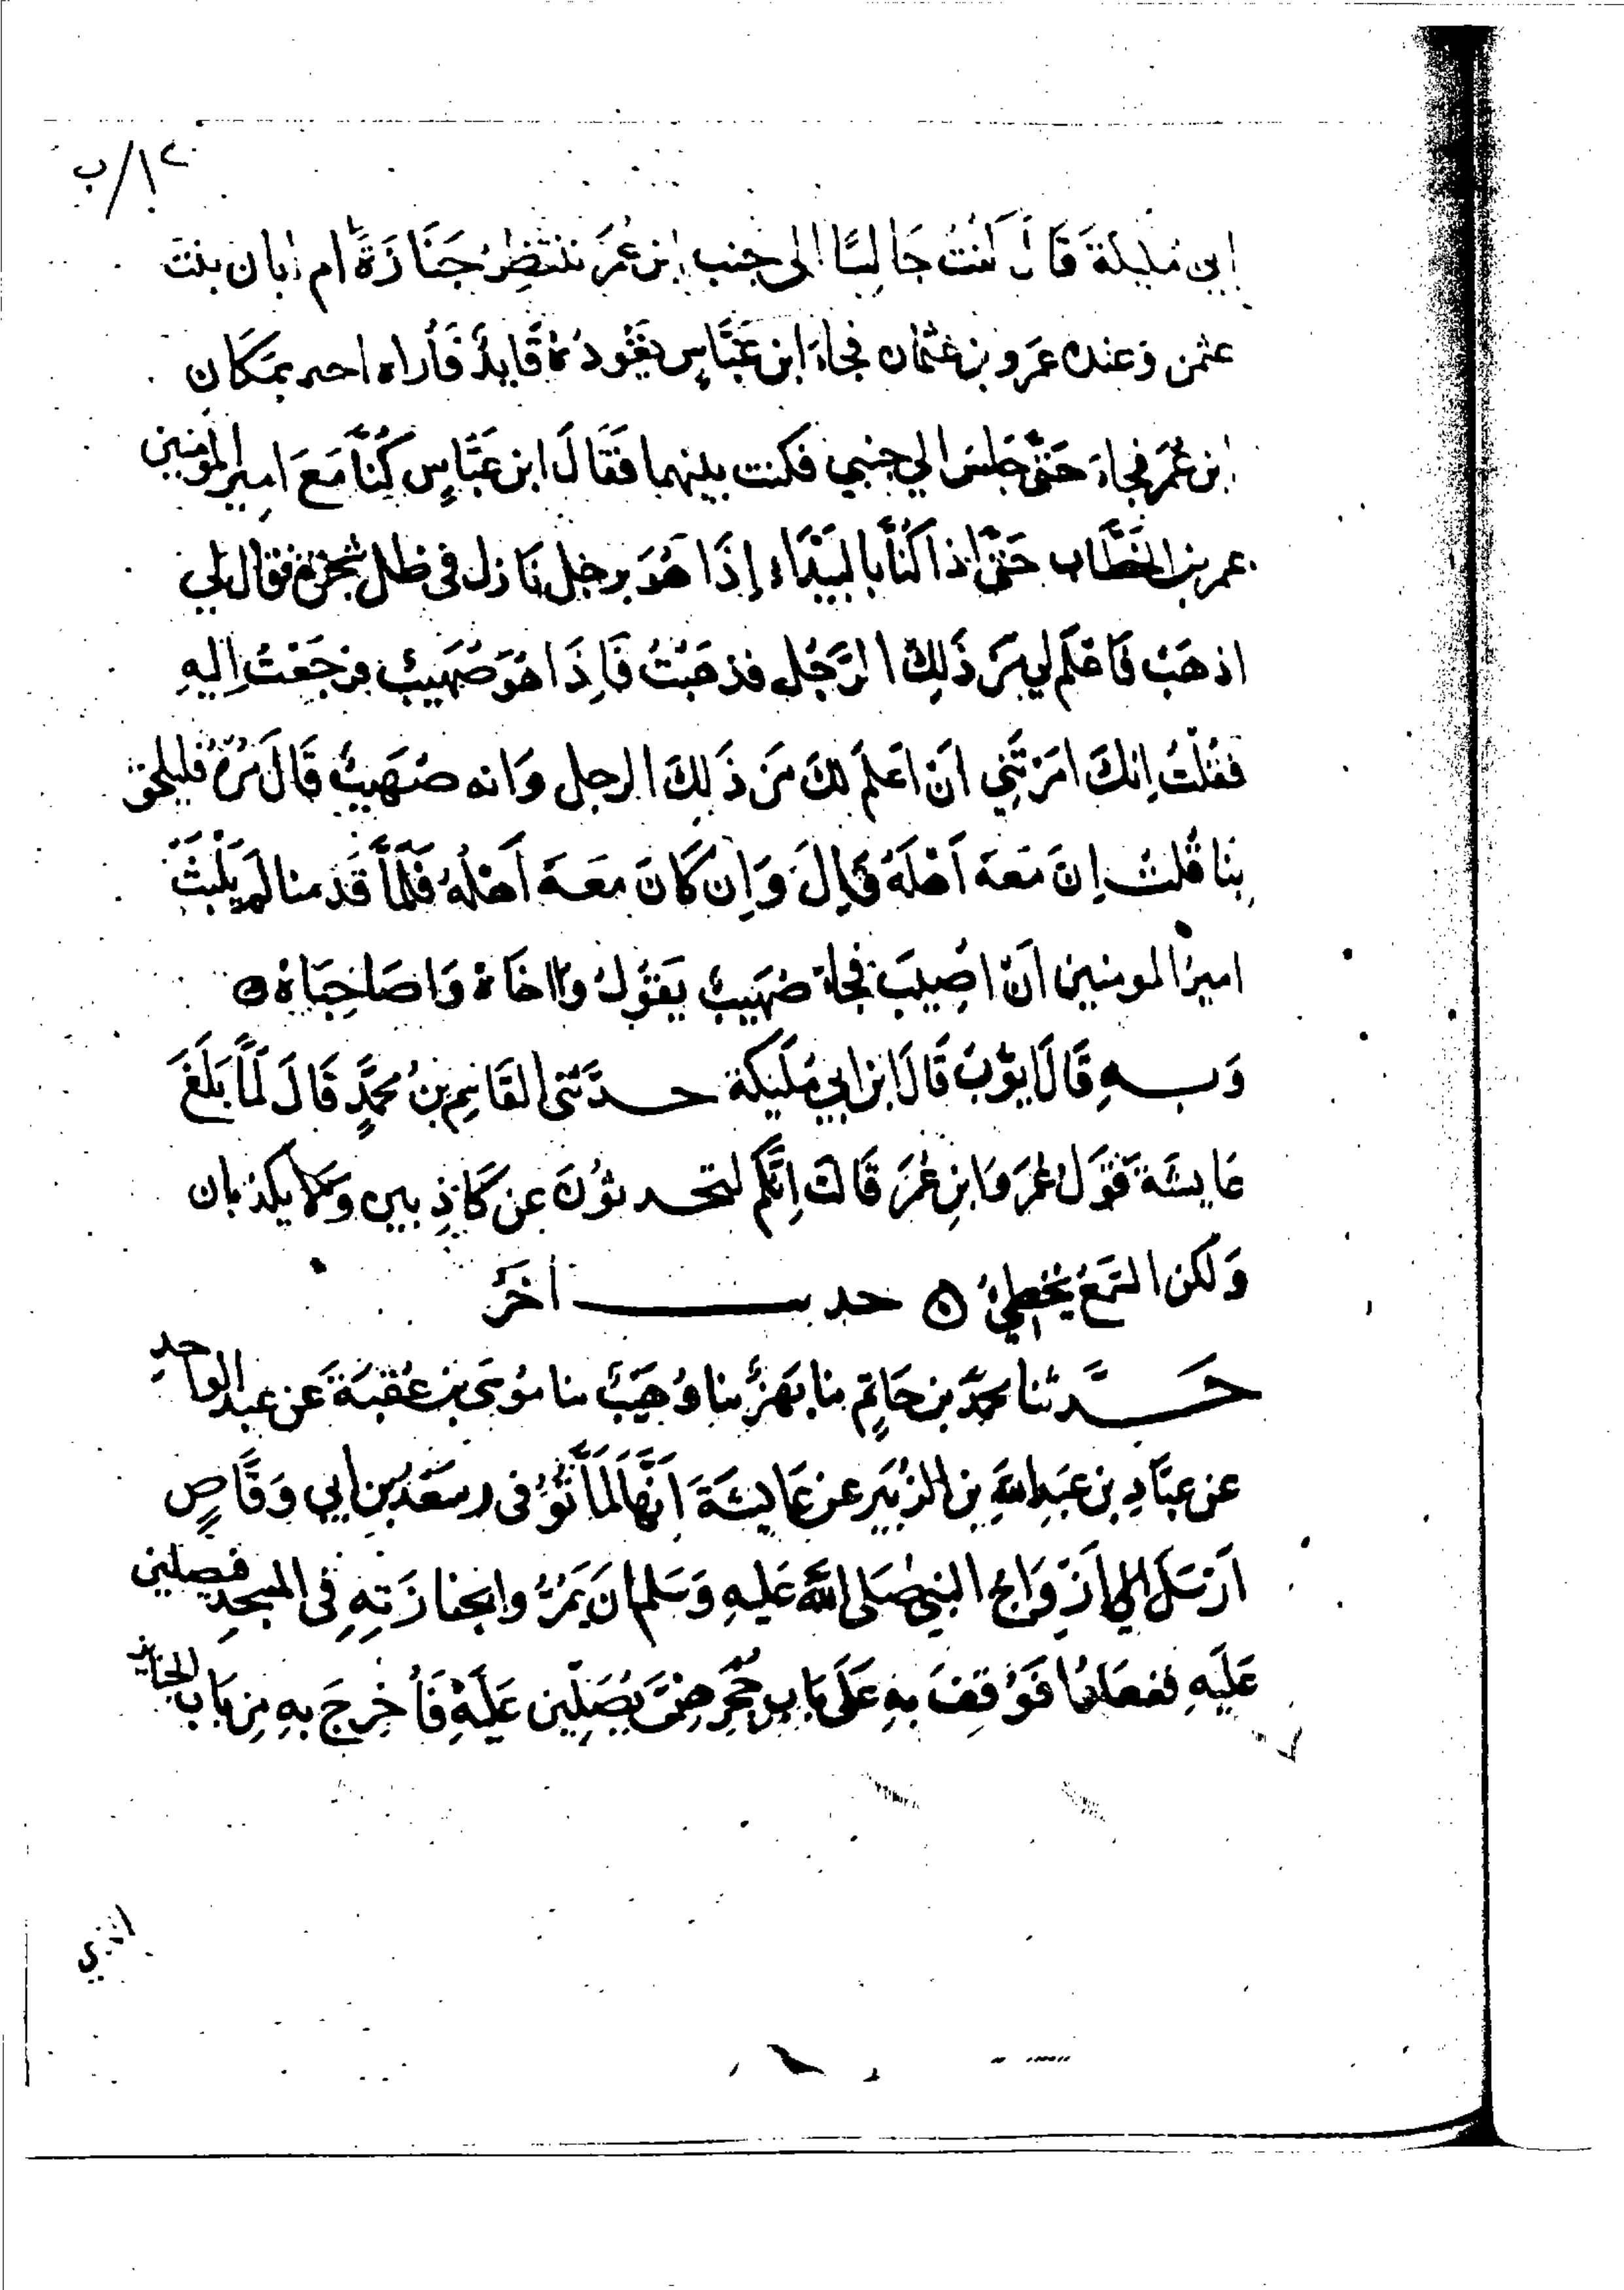 ١٢/ب
ابي مليكة قَالَ كنتُ جَالسًا الى جنب ابن عُمَرَ ننتظِرُ جَنَازَةَ ام ابان بنت
عثمن وَعنده عَمرو بن عُثمان فجاءَ ابن عَبَّاسٍ يَقُودُهُ قَايدٌ فَأُرَاه اخبره بمَكَان
ابن عُمَرَ فجاءَ حَتَّى جَلسَ الي جنبي فكنت بينهما فَقَالَ ابن عَبَّاسٍ كُنَّا مَعَ امير المومنين
عمر بن الخَطَّاب حَتَّى اذا كُنَّا بالبَيْدَاء إذَا هُوَ برجل نَازل فى ظل شجرة فقال لي
اذهَبْ فَاعْلَم لي مَن ذَلِكَ الرَّجُل فذهَبْتُ فَإِذَا هُوَ صُهَيبٌ فرَجَعْتُ اِلَيهِ
فقُلْتُ اِنكَ امَرْتَنِي اَنْ اَعلَمَ لكَ مَن ذَلِكَ الرجل وَانه صُهَيبٌ قَالَ مُرْهُ فليلحق
بِنَا قُلتُ اِنَّ مَعَهُ اَهْلَهُ قَالَ وَاِن كَانَ مَعَهُ اَهْلُهُ فَلَمَّا قَدمنا لم يَلْبَثْ
اميرُ المومنين اَنْ اُصِيبَ فجَاءَ صُهَيبٌ يَقُولُ وَااخَاهْ وَاصَاحِبَاهْ ه
وَبهِ قَالَ ايّوْبُ قَالَ ابن ابي مُلَيكة حدَّثنى القَاسِم بنُ محمَّدٍ قَالَ لَمَّا بَلَغَ
عَايشَةَ قَوْلُ عُمَرَ وَابنِ عُمَرَ قَالَتْ اِنَّكُم لتحدثوُنَ عن كَاذِبين وَلا يكذبان
وَلكن السَّمعَ يُخطِئُ ه حديث آخَرُ
حَدَّثنا محمَّد بن حَاتِم ثنا بَهْزٌ ثنا وُهَيبٌ ثنا مُوسَى بن عُقبَةَ عَن عبد الواحد
عن عبَّادِ بن عَبد اللهِ بن الزبَيرِ عن عَايشَةَ اَنَّهَا لَمَّا تُوُفِىَ سَعْدُ بن ابي وَقَّاصٍ
اَرْسَلَ اِلى اَزْوَاجِ النبي صَلى اللهُ عَليهِ وَسَلم اَن يَمُرُّوا بجنازَتِهِ فى المسجدِ فيصلين
عَلَيهِ ففعَلوُا فَوُقِفَ بهِ عَلَى بَابِ حُجَرِهِنَّ يُصَلِّين عَلَيْهِ فَأُخرِجَ بِهِ مِن بَاب الجنايز
الذي